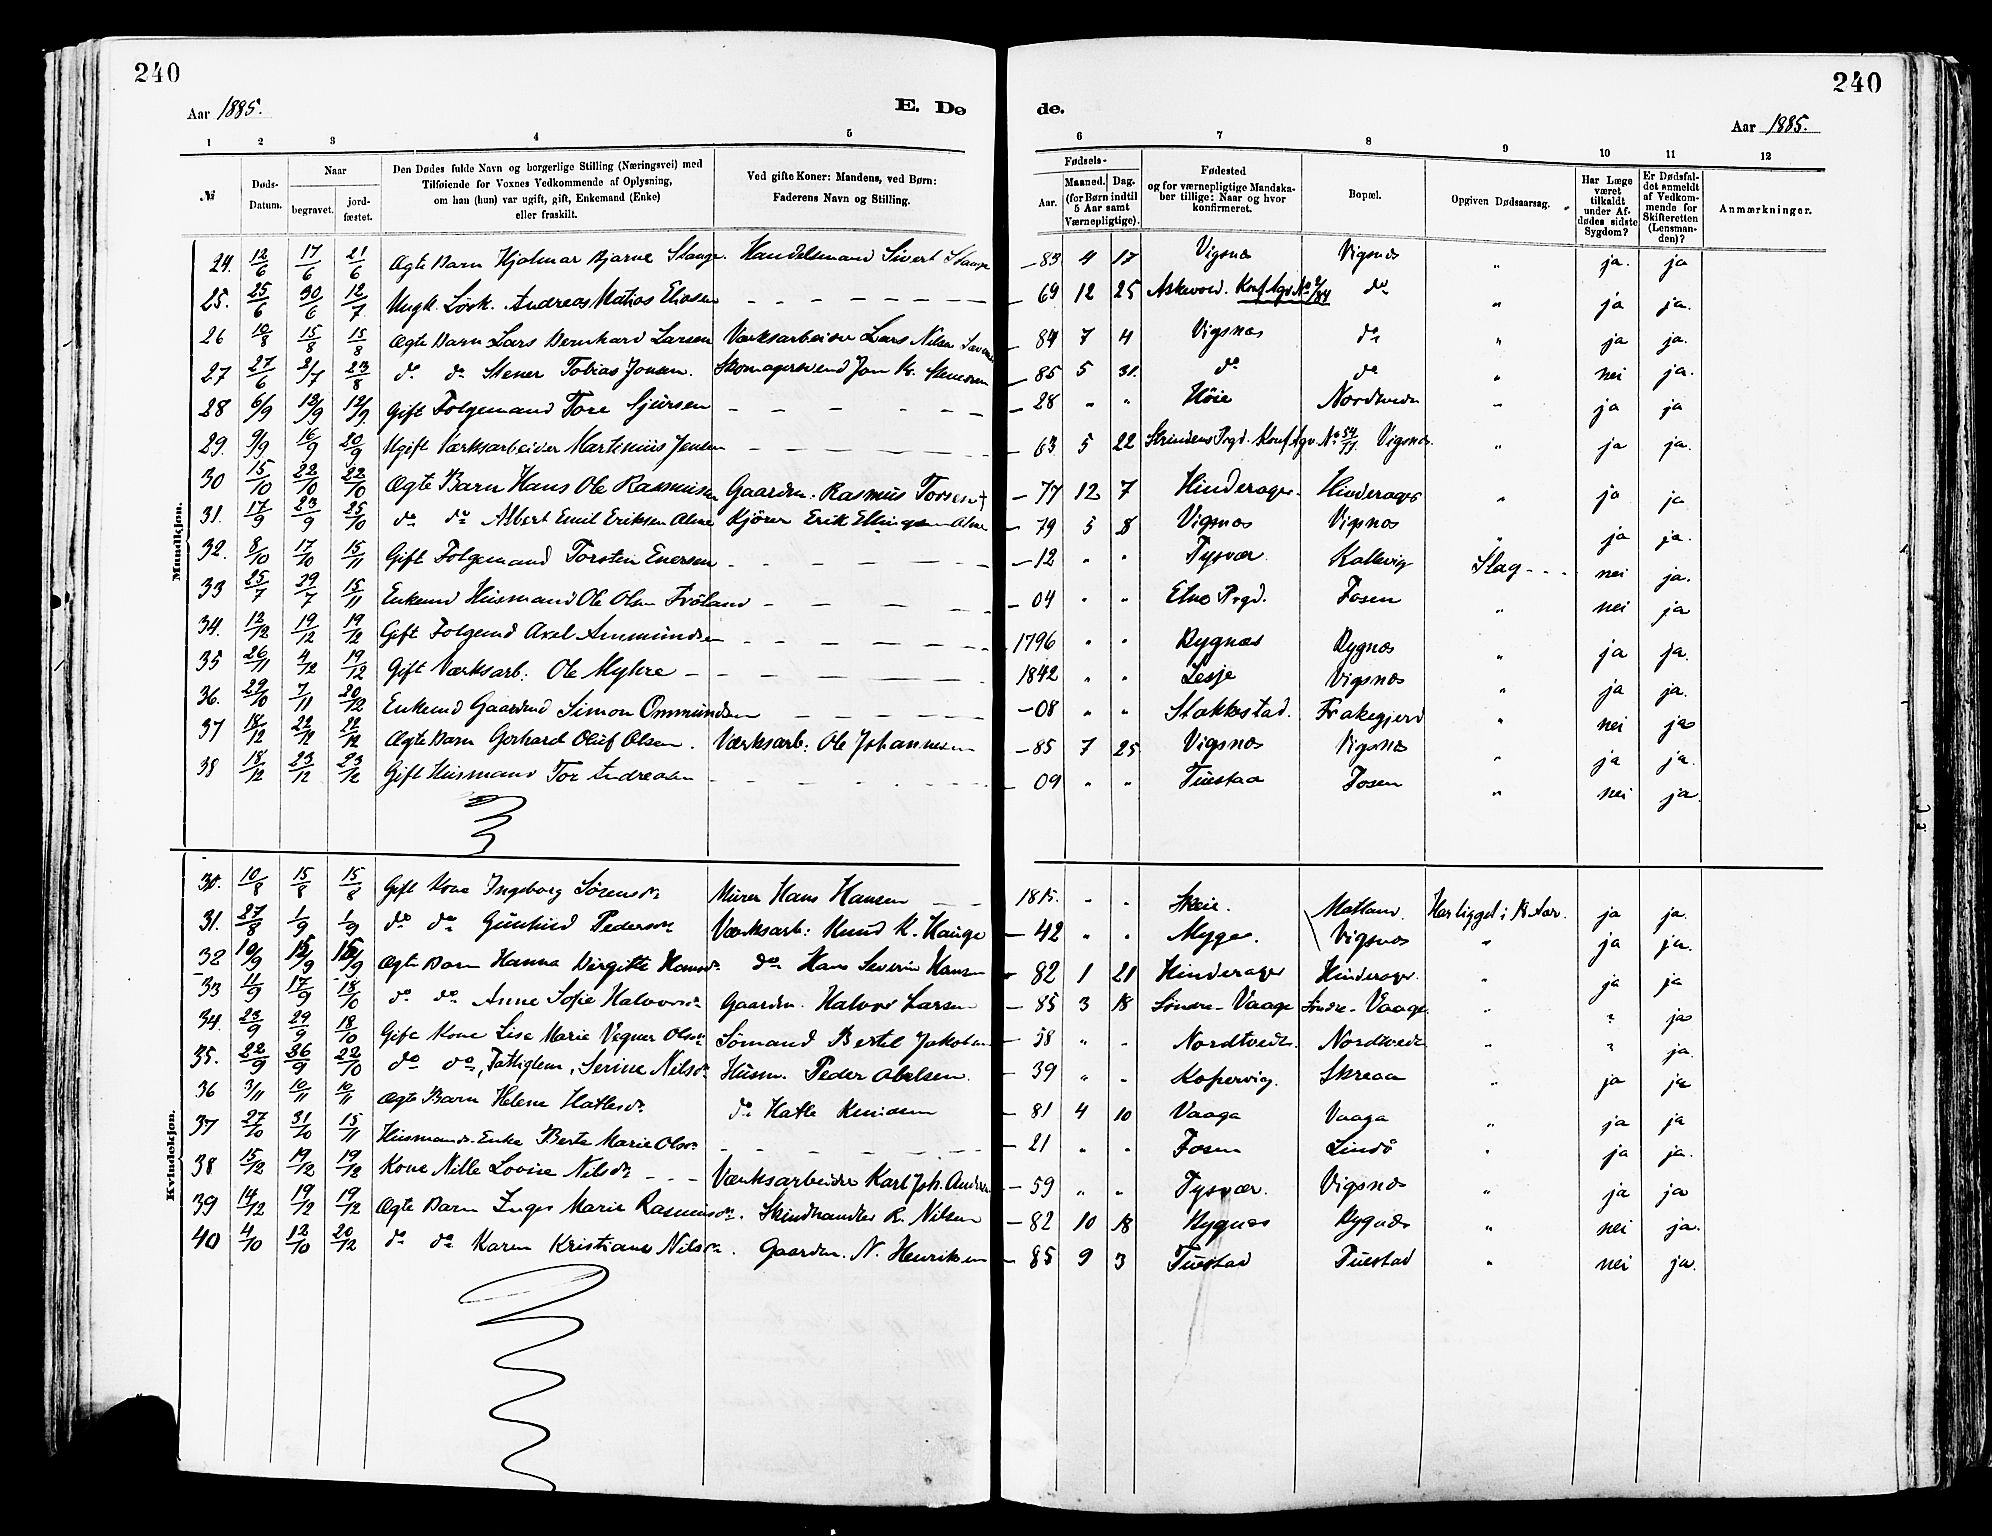 240
240
Aar 1885.
E. Dø
de.
Aar 1885.
1 2 3 4 5
6 7 8 9 10 11 12
№
Døds-Datum.
Naar
begravet.
jordfæstet.
Den Dødes fulde Navn og borgerlige Stilling (Næringsvei) med
Tilføiende for Voxnes Vedkommende af Oplysning,
om han (hun) var ugift, gift, Enkemand (Enke)
eller fraskilt.
Ved gifte Koner: Mandens, ved Børn:
Faderens Navn og Stilling.
Fødsels-
Aar.
Maaned. Dag.
(for Børn indtil
5 Aar samt
Værnepligtige).
Fødested
og for værnepligtige Mandska-
ber tillige: Naar og hvor
konfirmeret.
Bopæl.
Opgiven Dødsaarsag.
Har Læge
været
tilkaldt
under Af-
dødes sidste
Sygdom?
Er Dødsfal-
det anmeldt
af Vedkom-
mende for
Skifteretten
(Lensman-
den)?
Anmærkninger.
Mandkjøn.
24. 12/6 17/6 21/6 Ægte Barn Hjalmar Bjarne Stange. Handelsmand Sivert Stange – 83 4 17 Vigsnæs Vigsnæs " ja. ja
25. 25/6 30/6 12/7 Andreas Matias Eliasen – – – 69 12 25 Askevold. do " ja ja.
26 10/8 15/8 15/8 Ægte Barn Lars Bernhard Larsen Værksarbeider Lars Nilsen – 84 7 4 Vigsnæs do " ja ja.
27 27/6 2/7 23/8 do do Stener Tobias Jonsen. Skomagersvend Jon K. Stenersen – 85 5 31. do do " nei ja.
28 6/9 12/9 12/9. Gift Folgemand Tore Sjursen – – – 28 " " Høie Nordtvedt " ja ja
29. 9/9 16/9 20/9 Ugift Værksarbeider Martinius Jensen – – – 63 5 22 Strindens Prgd. Vigsnæs. " ja ja.
30 15/10 22/10 22/10 Ægte Barn Hans Ole Rasmussen Gaardm. Rasmus Torsen – 77 12 7 Hinderager. Hinderager " ja ja
31. 17/9 23/9 25/10 do do Albert Emil Eriksen Alne Kjører Erik Ellingsen Alne – 79 5 8 Vigsnæs Vigsnæs " ja ja.
32. 8/10 17/10 15/11 Gift Folgemand Torsten Enersen – – – 12 " " Tysvær. Kallevig Slag - - - nei ja.
33 25/7 29/7 15/11 Enkemd Husmand Ole Olsen Frøland – – – 04 " " Etne Prgd. Fosen " nei ja
34. 12/12 19/12 19/12 Gift Folgemd Axel Ammundsen – – 1796 " " Rygnæs Rygnæs " ja ja.
35 26/11 4/12 19/12 Gift Værksarb: Ole Myhre – – – 1842 " " Lesje Vigsnæs " ja ja.
36. 29/10 7/11 20/12 Enkemd Gaardmd Simon Ommundsen – – – 08 " " Stakkestad. Frakegjerd " nei ja
37 18/12 22/12 22/12 Ægte Barn Gerhard Oluf Olsen. Værksarb: Ole Johannesen – 85 7 25 Vigsnæs Vigsnæs " ja ja.
38 18/12 23/12 23/12 Gift Husmand Tor Andreasen – – – 09 " " Tuestad Fosen " nei ja
Kvindekjøn.
30. 10/8 15/8 15/8 Gift Kone Ingeborg Sørensdr Murer Hans Hansen – – 1815. " " Skeie. Matland. Har ligget i 18 Aar. ja ja.
31. 27/8 1/9 1/9 do do Gunhild Pedersdr Værksarb: Knud K. Hauge – 42 " " Myge. Vigsnæs " ja ja.
32 10/9 15/9 15/9 Ægte Barn Hanna Birgitte Hansdr do Hans Severin Hansen – 82 1 21 Hinderager Hinderager. " ja ja
33 11/9 17/9 18/10 do do Anne Sofie Halvorsdr Gaardm. Halvor Larsen – 85 3 18 Søndre-Vaage Søndre-Vaage. " ? ja
34. 23/9 29/9 18/10 Gift Kone Lise Marie Vegner Olsdr Sømand Bertel Jakobsen – 58 " " Nordtvedt. Nordtvedt " ? ja.
35. 22/9 26/9 22/10 do do, Fattiglem, Serine Nilsdr Husm. Peder Abelsen. – 39 " " Kopervig. Skreaa " ja ja
36 3/11 10/11 10/11 Ægte Barn Helene Hatlesdr do Hatle Knudsen – 81 4 10 Vaaga Vaaga " ja ja
37 27/10 31/10 15/11 Husmands Enke Berte Marie Olsdr – – – 21 " " Fosen Lindø " ja ja.
38 15/12 19/12 19/12 Kone Nille Lovise Nilsdr – – – Værksarbeider Karl Joh. Andersen – 59 " " Tysvær. Vigsnæs " ja ja
39 14/12 19/12 19/12 Ægte Barn Inger Marie Rasmusdr. Skindhandler R. Nilsen – 82 10 18 Rygnæs Rygnæs " nei ja.
40 4/10 12/10 20/12 do do Karen Kristiane Nilsdr. Gaardm. N. Henriksen – 85 9 3 Tuestad Tuestad " nei ja.